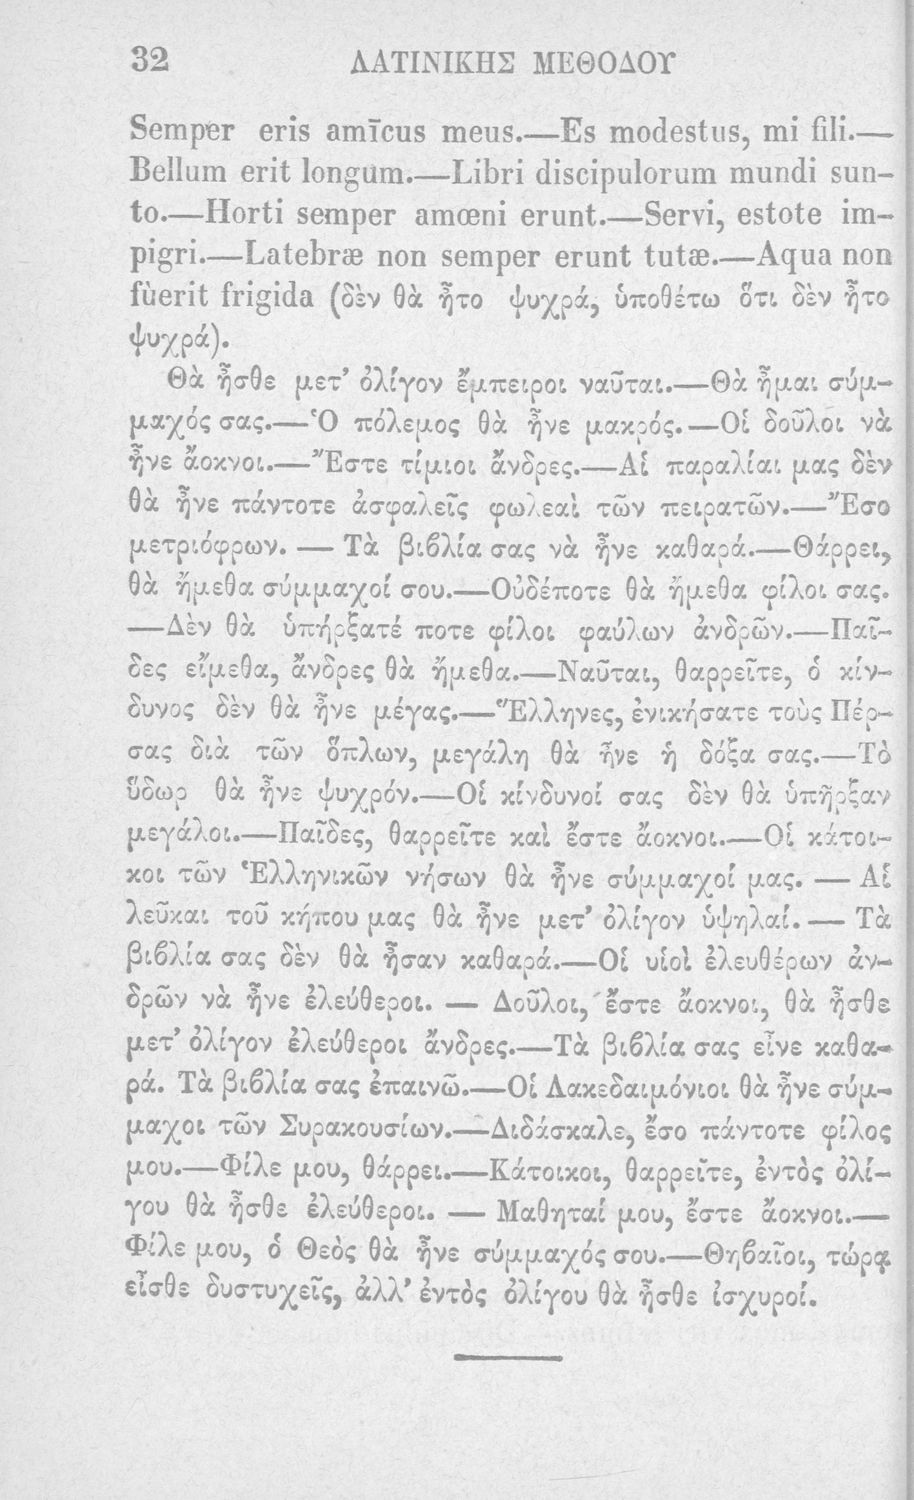 32 ΛΑΤΙΝΙΚΗΣ ΜΕΘΟΔΟΥ
Semper eris amīcus meus.—Es modestus, mi fili.—
Bellum erit longum.—Libri discipulorum mundi sun-
to.—Horti semper amœni erunt.—Servi, estote im-
pigri.—Latebræ non semper erunt tutæ.—Aqua non
fùerit frigida (δὲν θὰ ἦτο ψυχρά, ὑποθέτω ὅτι δὲν ἦτο
ψυχρά).
Θὰ ἦσθε μετ’ ὀλίγον ἔμπειροι ναῦται.—Θὰ ἦμαι σύμ-
μαχός σας.—Ὁ πόλεμος θὰ ἦνε μακρός.—Οἱ δοῦλοι νὰ
ἦνε ἄοκνοι.—Ἔστε τίμιοι ἄνδρες.—Αἱ παραλίαι μας δὲν
θὰ ἦνε πάντοτε ἀσφαλεῖς φωλεαὶ τῶν πειρατῶν.—Ἔσο
μετριόφρων. — Τὰ βιϐλία σας νὰ ἦνε καθαρά.—Θάρρει,
θὰ ἤμεθα σύμμαχοί σου.—Οὐδέποτε θὰ ἤμεθα φίλοι σας.
—Δὲν θὰ ὑπήρξατέ ποτε φίλοι φαύλων ἀνδρῶν.—Παῖ-
δες εἴμεθα, ἄνδρες θὰ ἤμεθα.—Ναῦται, θαρρεῖτε, ὁ κίν-
δυνος δὲν θὰ ἦνε μέγας.—Ἕλληνες, ἐνικήσατε τοὺς Πέρ-
σας διὰ τῶν ὅπλων, μεγάλη θὰ ἦνε ἡ δόξα σας.—Τὸ
ὕδωρ θὰ ἦνε ψυχρόν.—Οἱ κίνδυνοί σας δὲν θὰ ὑπῆρξαν
μεγάλοι.—Παῖδες, θαρρεῖτε καὶ ἔστε ἄοκνοι.—Οἱ κάτοι-
κοι τῶν Ἑλληνικῶν νήσων θὰ ἦνε σύμμαχοί μας. — Αἱ
λεῦκαι τοῦ κήπου μας θὰ ἦνε μετ’ ὀλίγον ὑψηλαί.— Τὰ
βιϐλία σας δὲν θὰ ἦσαν καθαρά.—Οἱ υἱοὶ ἐλευθέρων ἀν-
δρῶν νὰ ἦνε ἐλεύθεροι. — Δοῦλοι, ἔστε ἄοκνοι, θὰ ἦσθε
μετ’ ὀλίγον ἐλεύθεροι ἄνδρες.—Τὰ βιϐλία σας εἶνε καθα-
ρά. Τὰ βιϐλία σας ἐπαινῶ.—Οἱ Λακεδαιμόνιοι θὰ ἦνε σύμ-
μαχοι τῶν Συρακουσίων.—Διδάσκαλε, ἔσο πάντοτε φίλος
μου.—Φίλε μου, θάρρει.—Κάτοικοι, θαρρεῖτε, ἐντὸς ὀλί-
γου θὰ ἦσθε ἐλεύθεροι. — Μαθηταί μου, ἔστε ἄοκνοι.—
Φίλε μου, ὁ Θεὸς θὰ ἦνε σύμμαχός σου.—Θηϐαῖοι, τώρᾳ
εἶσθε δυστυχεῖς, ἀλλ’ ἐντὸς ὀλίγου θὰ ἦσθε ἰσχυροί.